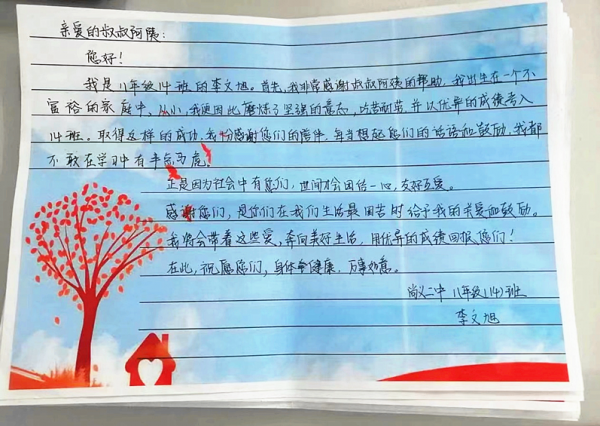 亲爱的叔叔阿姨：
您好！
我是八年级14班的李文旭。首先，我非常感谢叔叔阿姨的帮助，我出生在一个不
富裕的家庭中、从小，我便因此磨炼了坚强的意志，吃苦耐劳，并以优异的成绩考入
14班。取得这样的成功，我十分感谢您们的陪伴，每当想起您们的话语和鼓励，我都
不敢在学习中有半点马虎，
正是因为社会中有您们，世间才会团结一心，友好互爱。
感谢您们，是你们在我们生活最困苦时给予我的关爱和鼓励。
我将会带着这些爱，奔向美好生活，用优异的成绩回报您们！
在此，祝愿您们，身体健康，万事如意。
尚义二中 八年级(14)班
李文旭